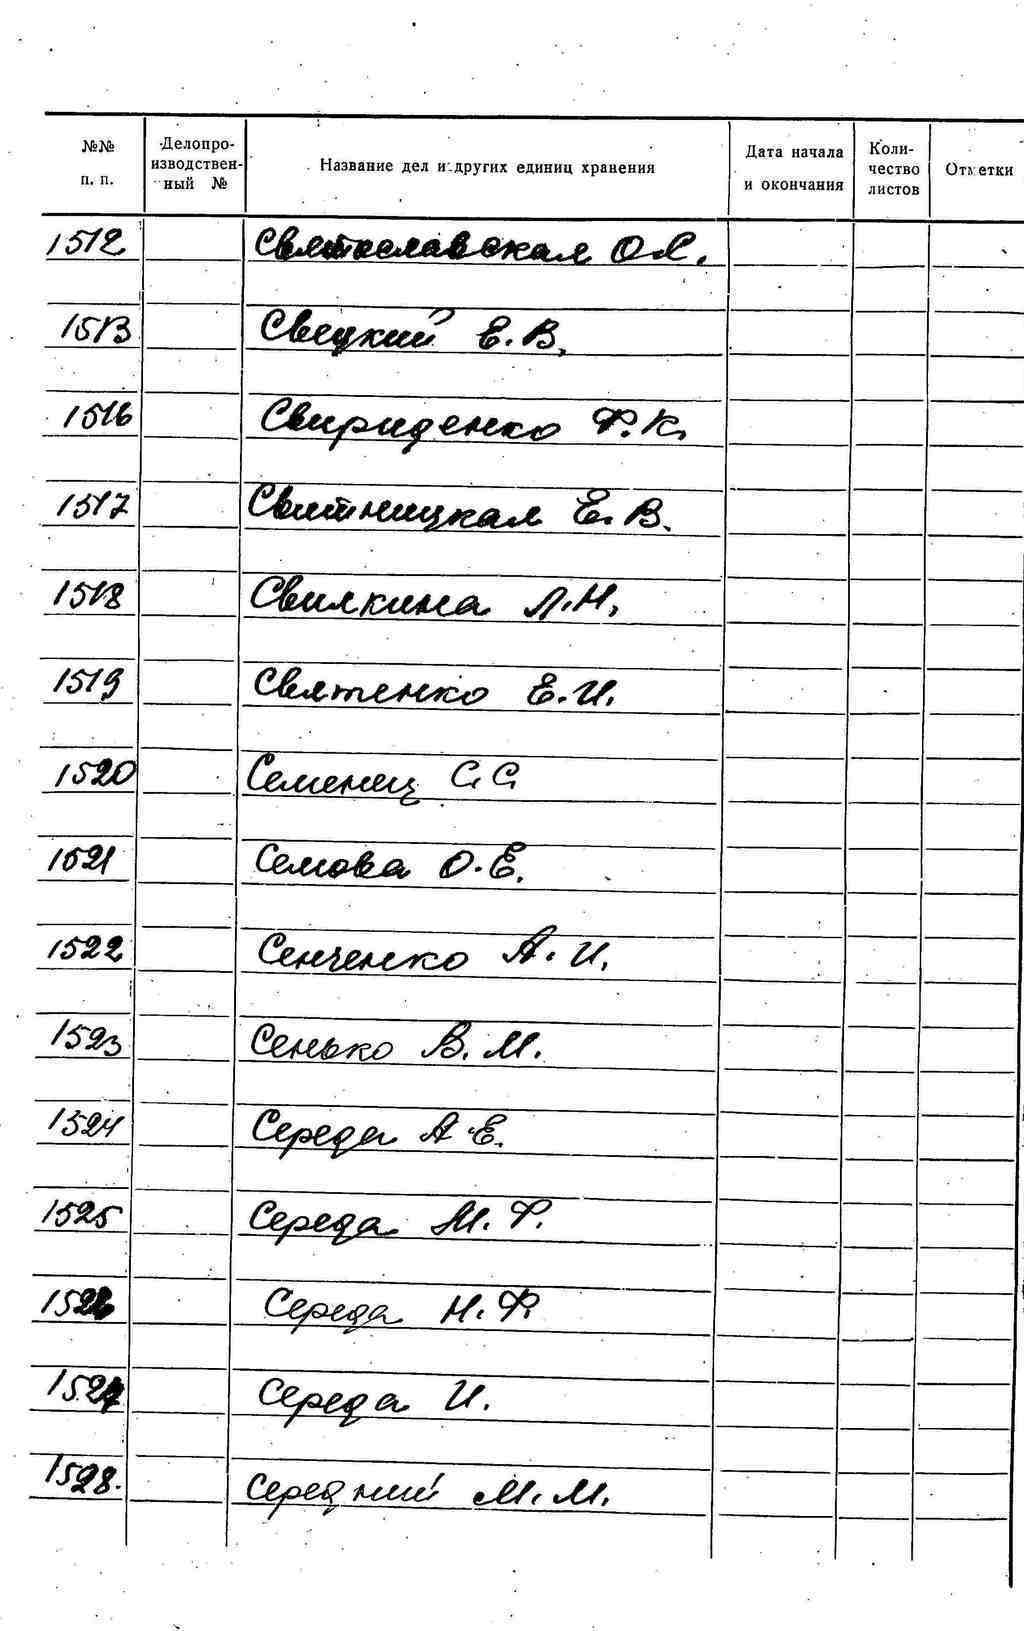 №№ п. п. Делопроизводственный № Название дел и других единиц хранения Дата начала и окончания Количество листов Отметки
1512 Святославская О.
1513 Свецкий Е. В.
1516 Свириденко Ф. К.
1517 Свитницкая Е. В.
1518 Свилкина Л. Н.
1519 Святенко Е. И.
1520 Семенец С. С.
1521 Семова О. Е.
1522 Сенченко А. И.
1523 Сенько В. М.
1524 Середа А. Е.
1525 Середа М. Ф.
1526 Середа Н. Ф.
1527 Середа И.
1528. Середний М. М.